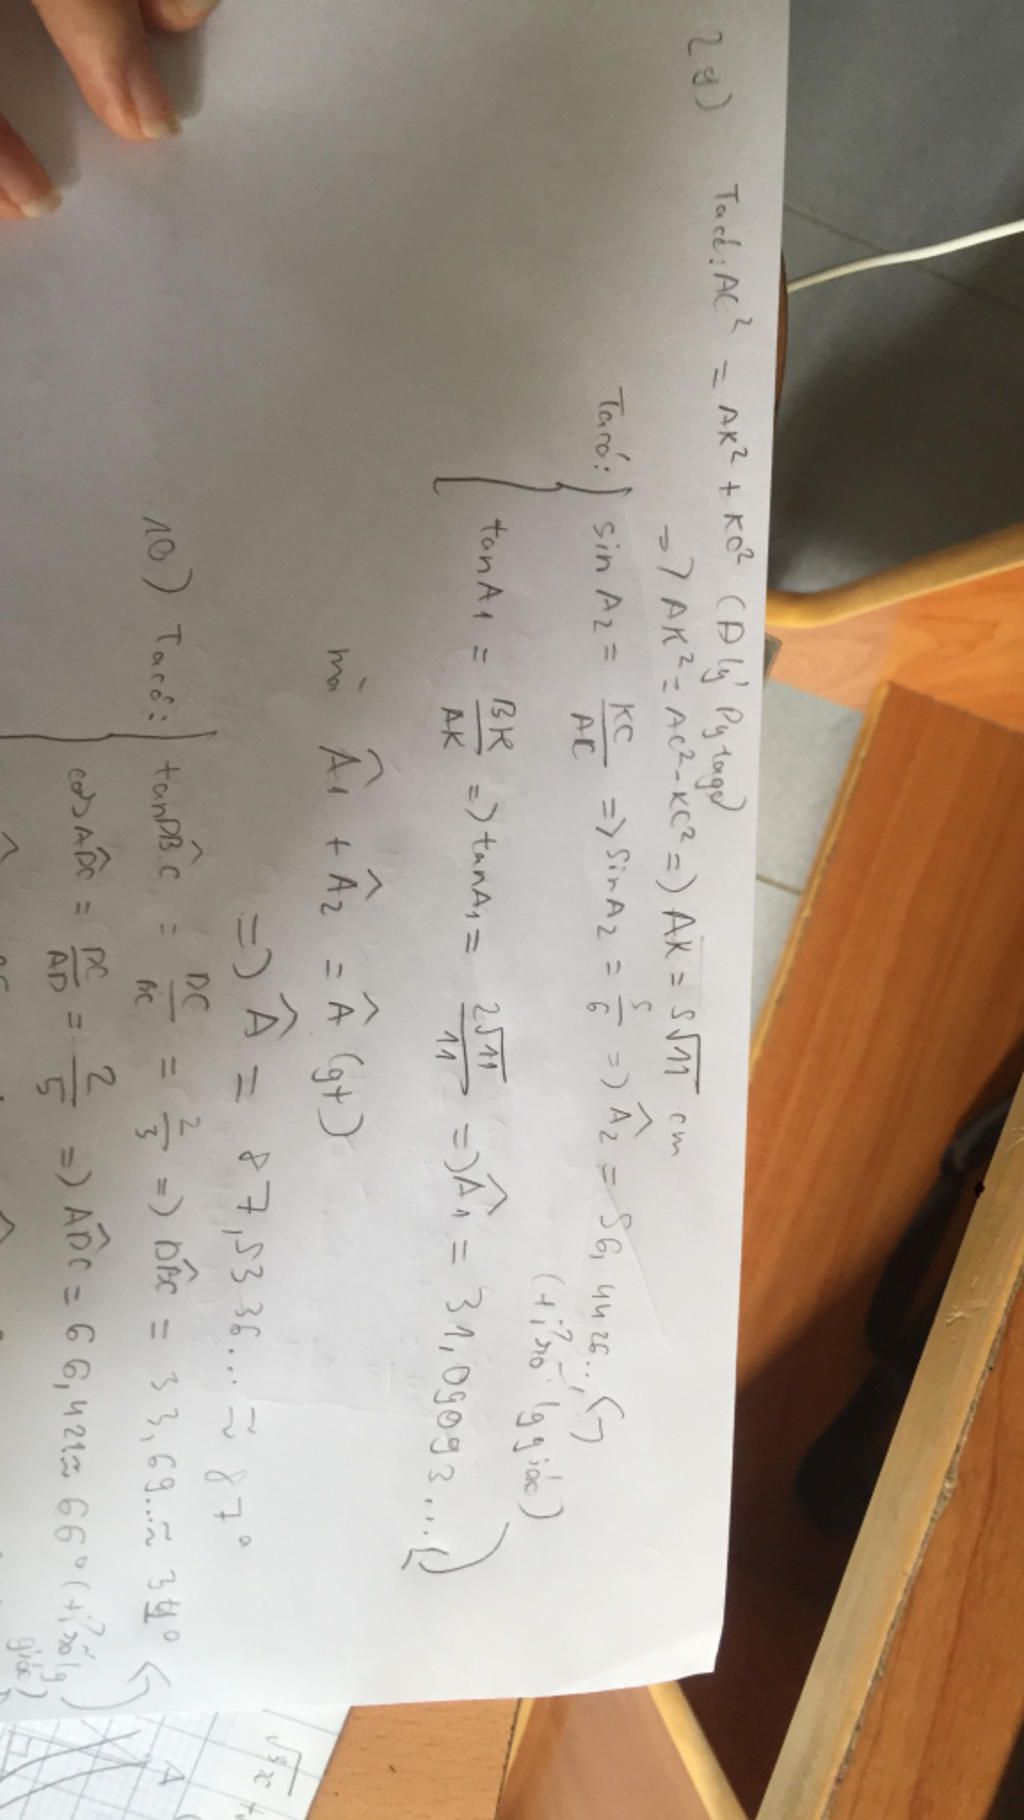 2g)
Ta có: AC² = AK² + KC² (Đ lý Pytago)
=> AK² = AC² - KC² => AK = 5√11 cm
Ta có: sin A₂ = KC/AC => sin A₂ = 5/6 => Â₂ = 56,4426...
(tỉ số lg giác)
tan A₁ = BK/AK => tan A₁ = 2√11/11 => Â₁ = 31,09093...
mà Â₁ + Â₂ = Â (gt)
=> Â = 87,5336... ≈ 87°
10) Ta có: tan DB̂C = DC/BC = 2/3 => DB̂C = 33,69... ≈ 34°
cos AD̂C = DC/AD = 2/5 => AD̂C = 66,421 ≈ 66° (tỉ số lg giác)
√5x
A